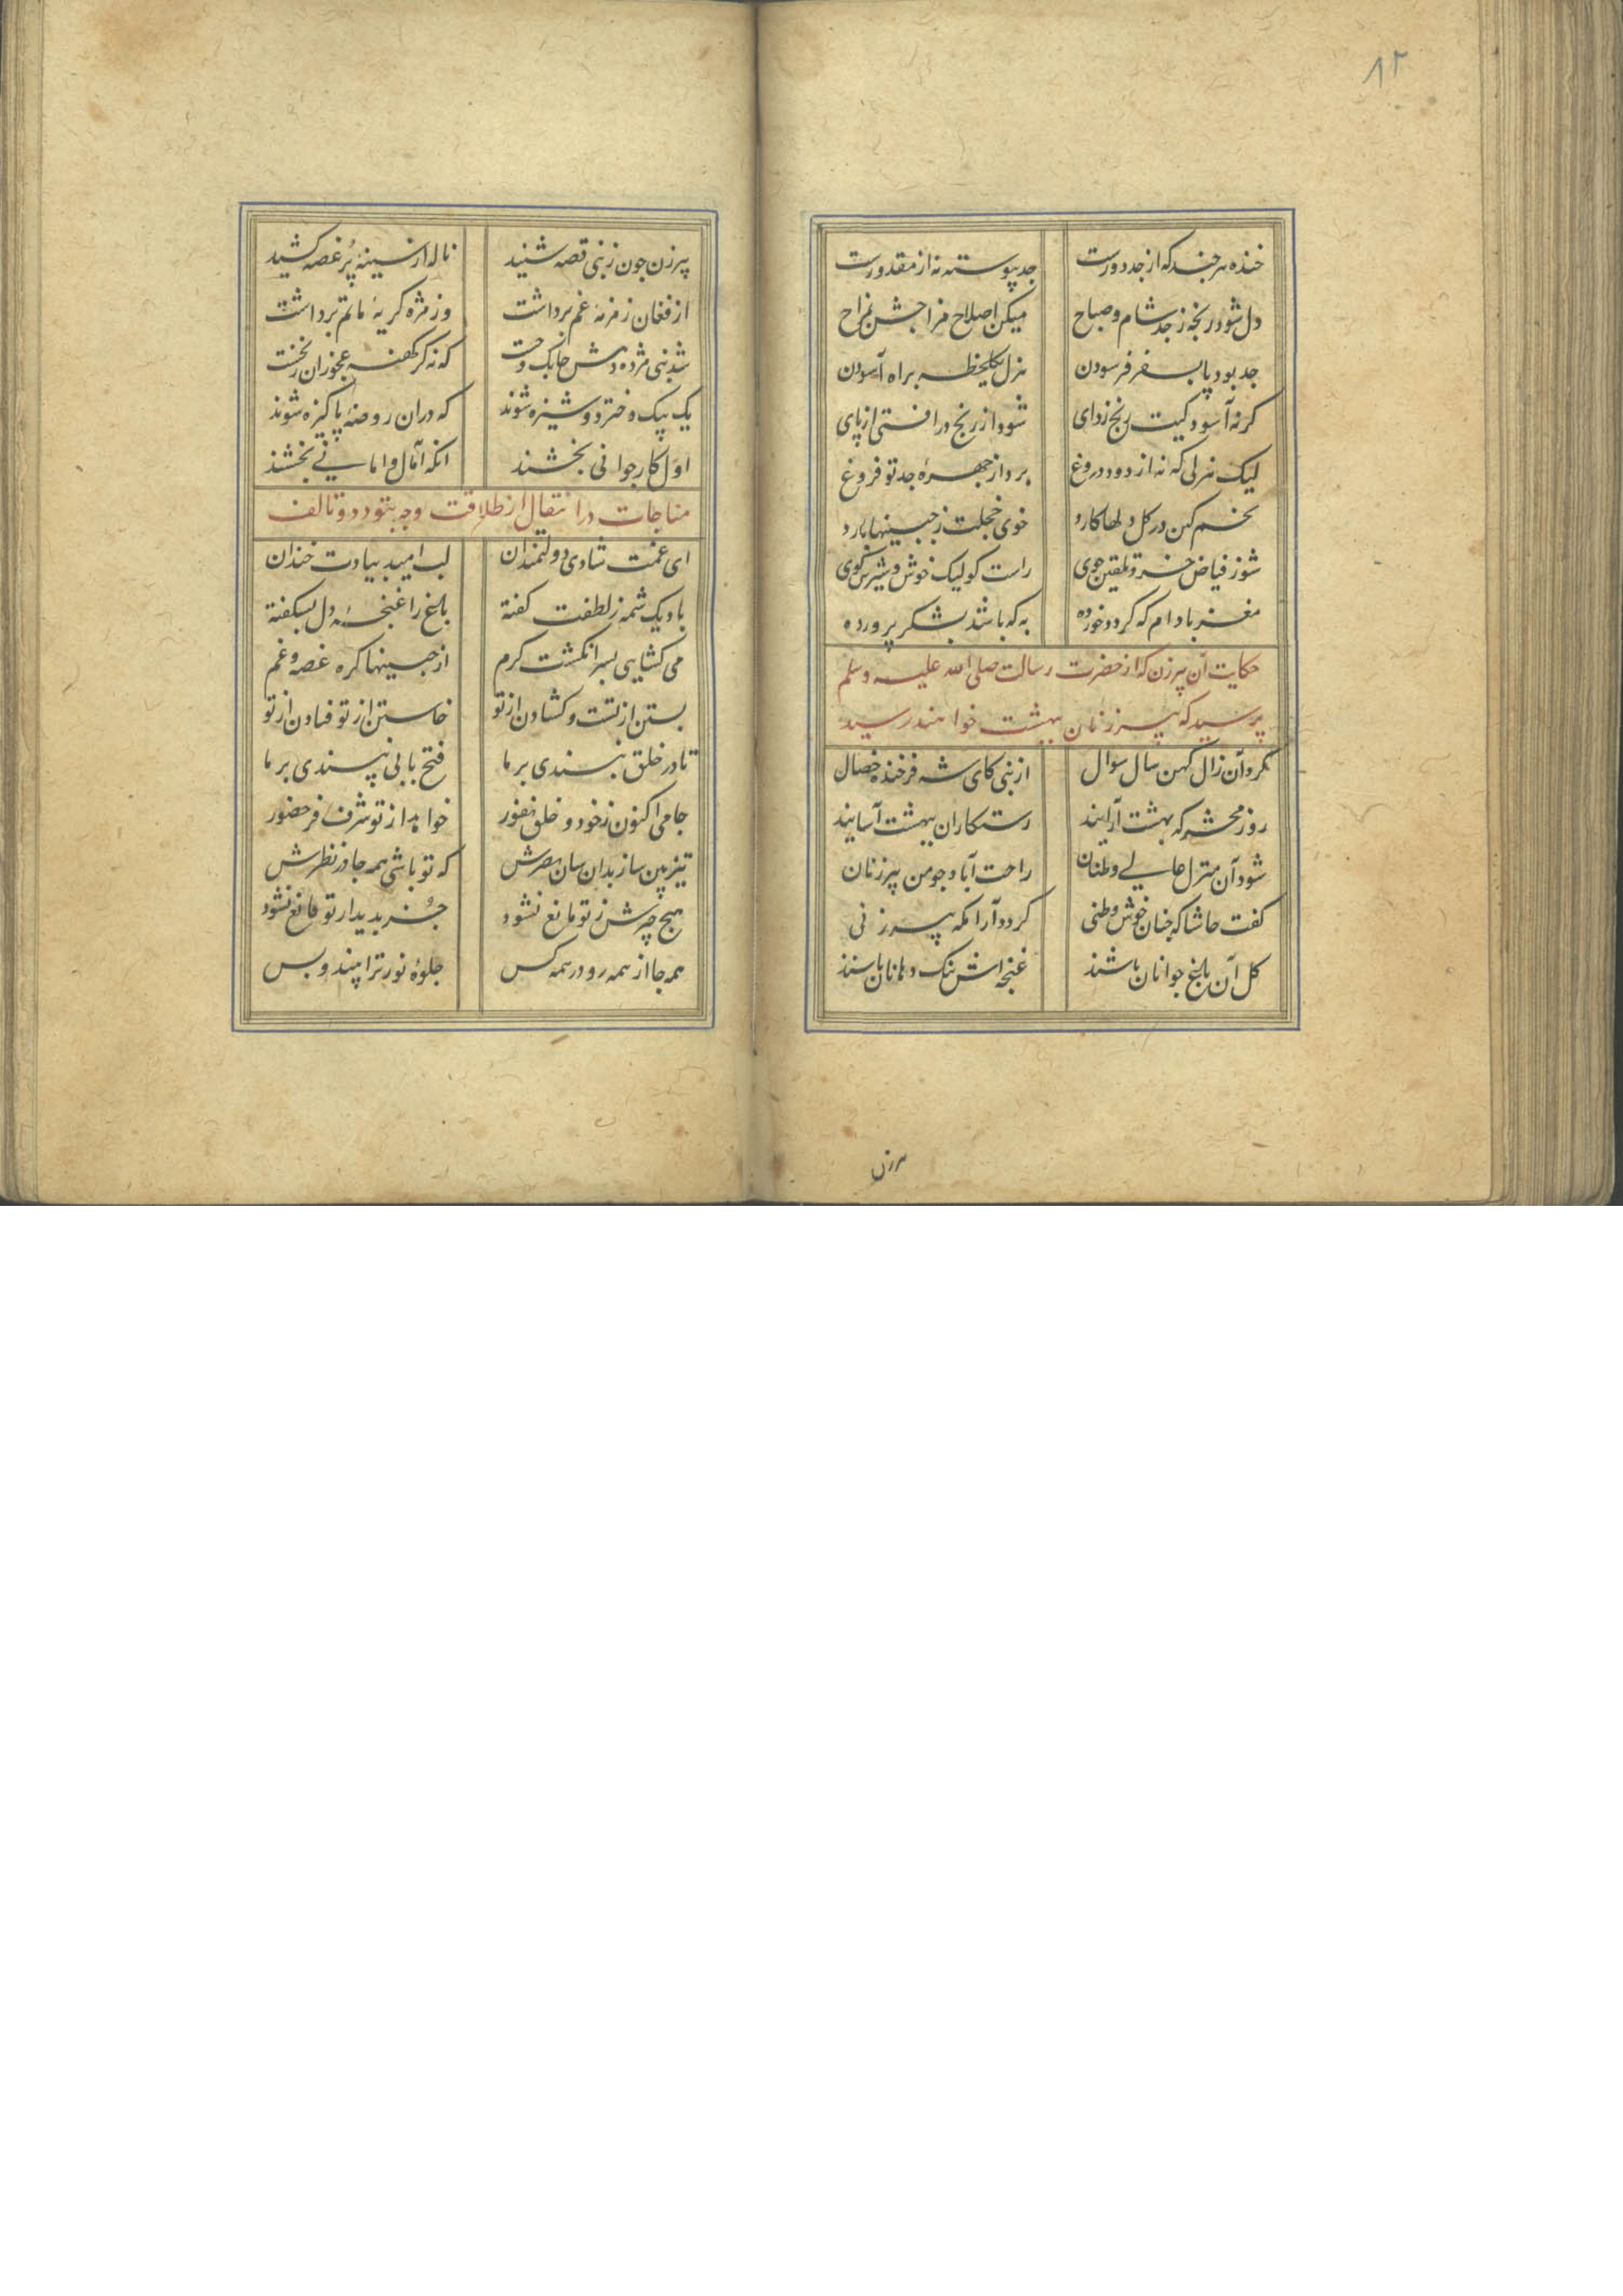 ۸۲
خنده هر چند که از جد دورست جد پیوسته نه از مقدورست
دل شود رنجه ز جد شام و صباح میکن اصلاح مزاجش بمزاح
جد بود پا بسفر فرسودن هزل یکلحظه براه آسودن
کرنه آسودکیت رنج زدای شود از رنج درافتی از پای
لیک هزلی که نه از دود دروغ برد از چهره جد تو فروغ
تخم کین در کل دلها کارد خوی خجلت ز جبینها بارد
شو ز فیاض خرد تلقین جوی راست کو لیک خوش و شیرین کوی
مغز بادام که کردد خورده به که باشد بشکر پرورده
حکایت آن پیرزن که از حضرت رسالت صلی الله علیه وسلم
پرسید که پیرزنان ببهشت خواهند رسید
کرد آن زال کهن سال سوال از نبی کای شه فرخنده خصال
روز محشر که بهشت آرایند رستکاران ببهشت آسایند
شود آن منزل عالی وطنان راحت آباد جو من پیرزنان
کفت حاشا که جنان خوش وطنی کردد آرامکه پیرزنی
کل آن باغ جوانان باشند غنجه اش تنک دهانان باشند
پیرزن
پیرزن جون ز نبی قصه شنید ناله از سینهٔ پُر غصه کشید
از فغان زمزمهٔ غم برداشت وز مژه کریهٔ ماتم برداشت
شد نبی مژده دهش جابک و جست که نه کر کهنه عجوزان ز نخست
یک بیک دختر دوشیزه شوند که دران روضهٔ پاکیزه شوند
اول کار جوانی بخشند انکه آمال و امانی بخشند
مناجات در انتقال از طلاقت وجه بتودد و تالف
ای غمت شادی دولتمندان لب امید بیادت خندان
باد یک شمه ز لطفت کفته باغ را غنجهٔ دل بسکفته
می کشایی بسر انکشت کرم از جبینها کره غصه و غم
بستن از تست و کشادن از تو خاستن از تو فتادن از تو
تا در خلق نبندی بر ما فتح بابی نپسندی بر ما
جامی اکنون ز خود و خلق نفور خواهد از تو شرف فر حضور
تیزبین ساز بدان سان بصرش که تو باشی همه جا در نظرش
هیج چیزش ز تو مانع نشود جُز بدیدار تو قانع نشود
همه جا از همه رو در همه کس جلوهٔ نور ترا بیند و بس